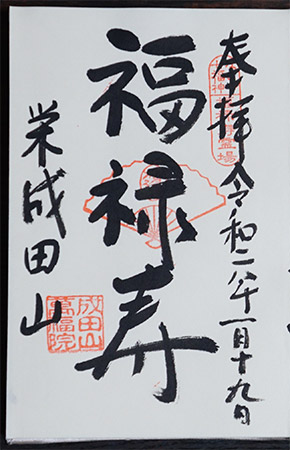 奉拝 令和二年一月十九日
福禄寿
栄成田山
成田山
萬福院
霊場